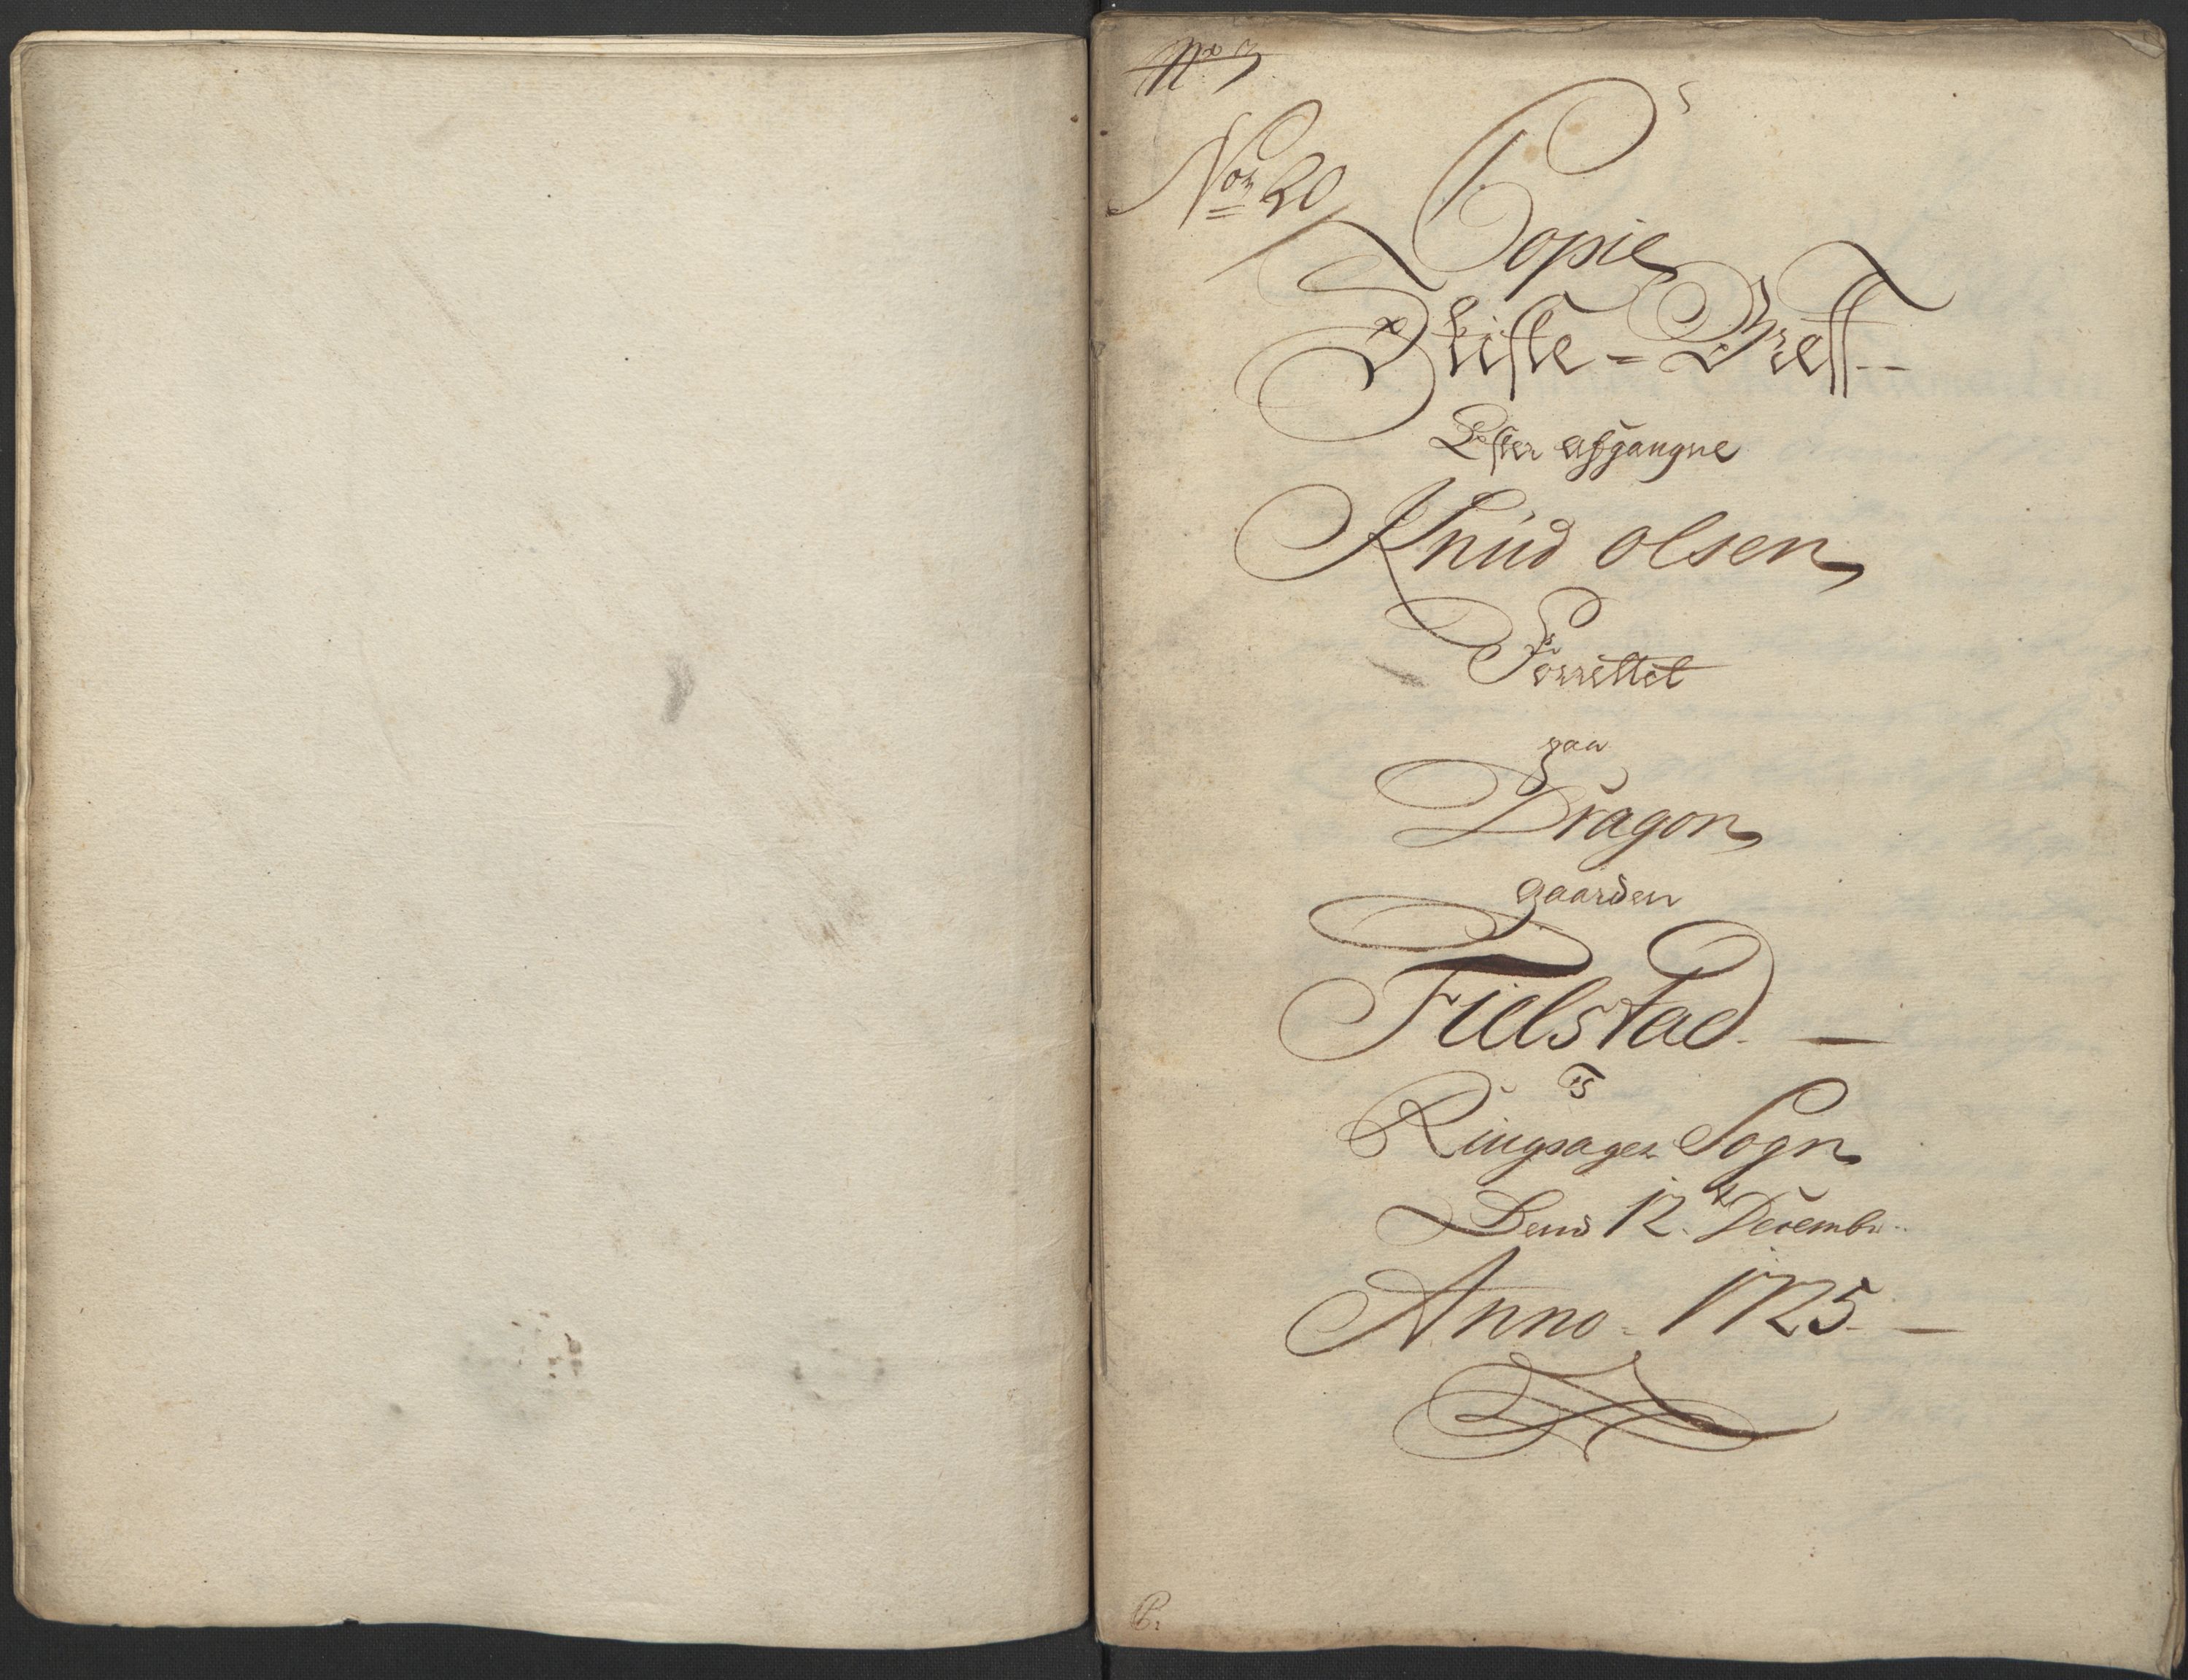 No 3
Nor 20
Copie
Skifte-Breff--
Efter afgangne
Knud olsen
Forrettet
paa
Dragon
gaarden
Fielstad. —
I
Ringsager Sogn
Dend 12. Decembr..
Anno. 1725. —